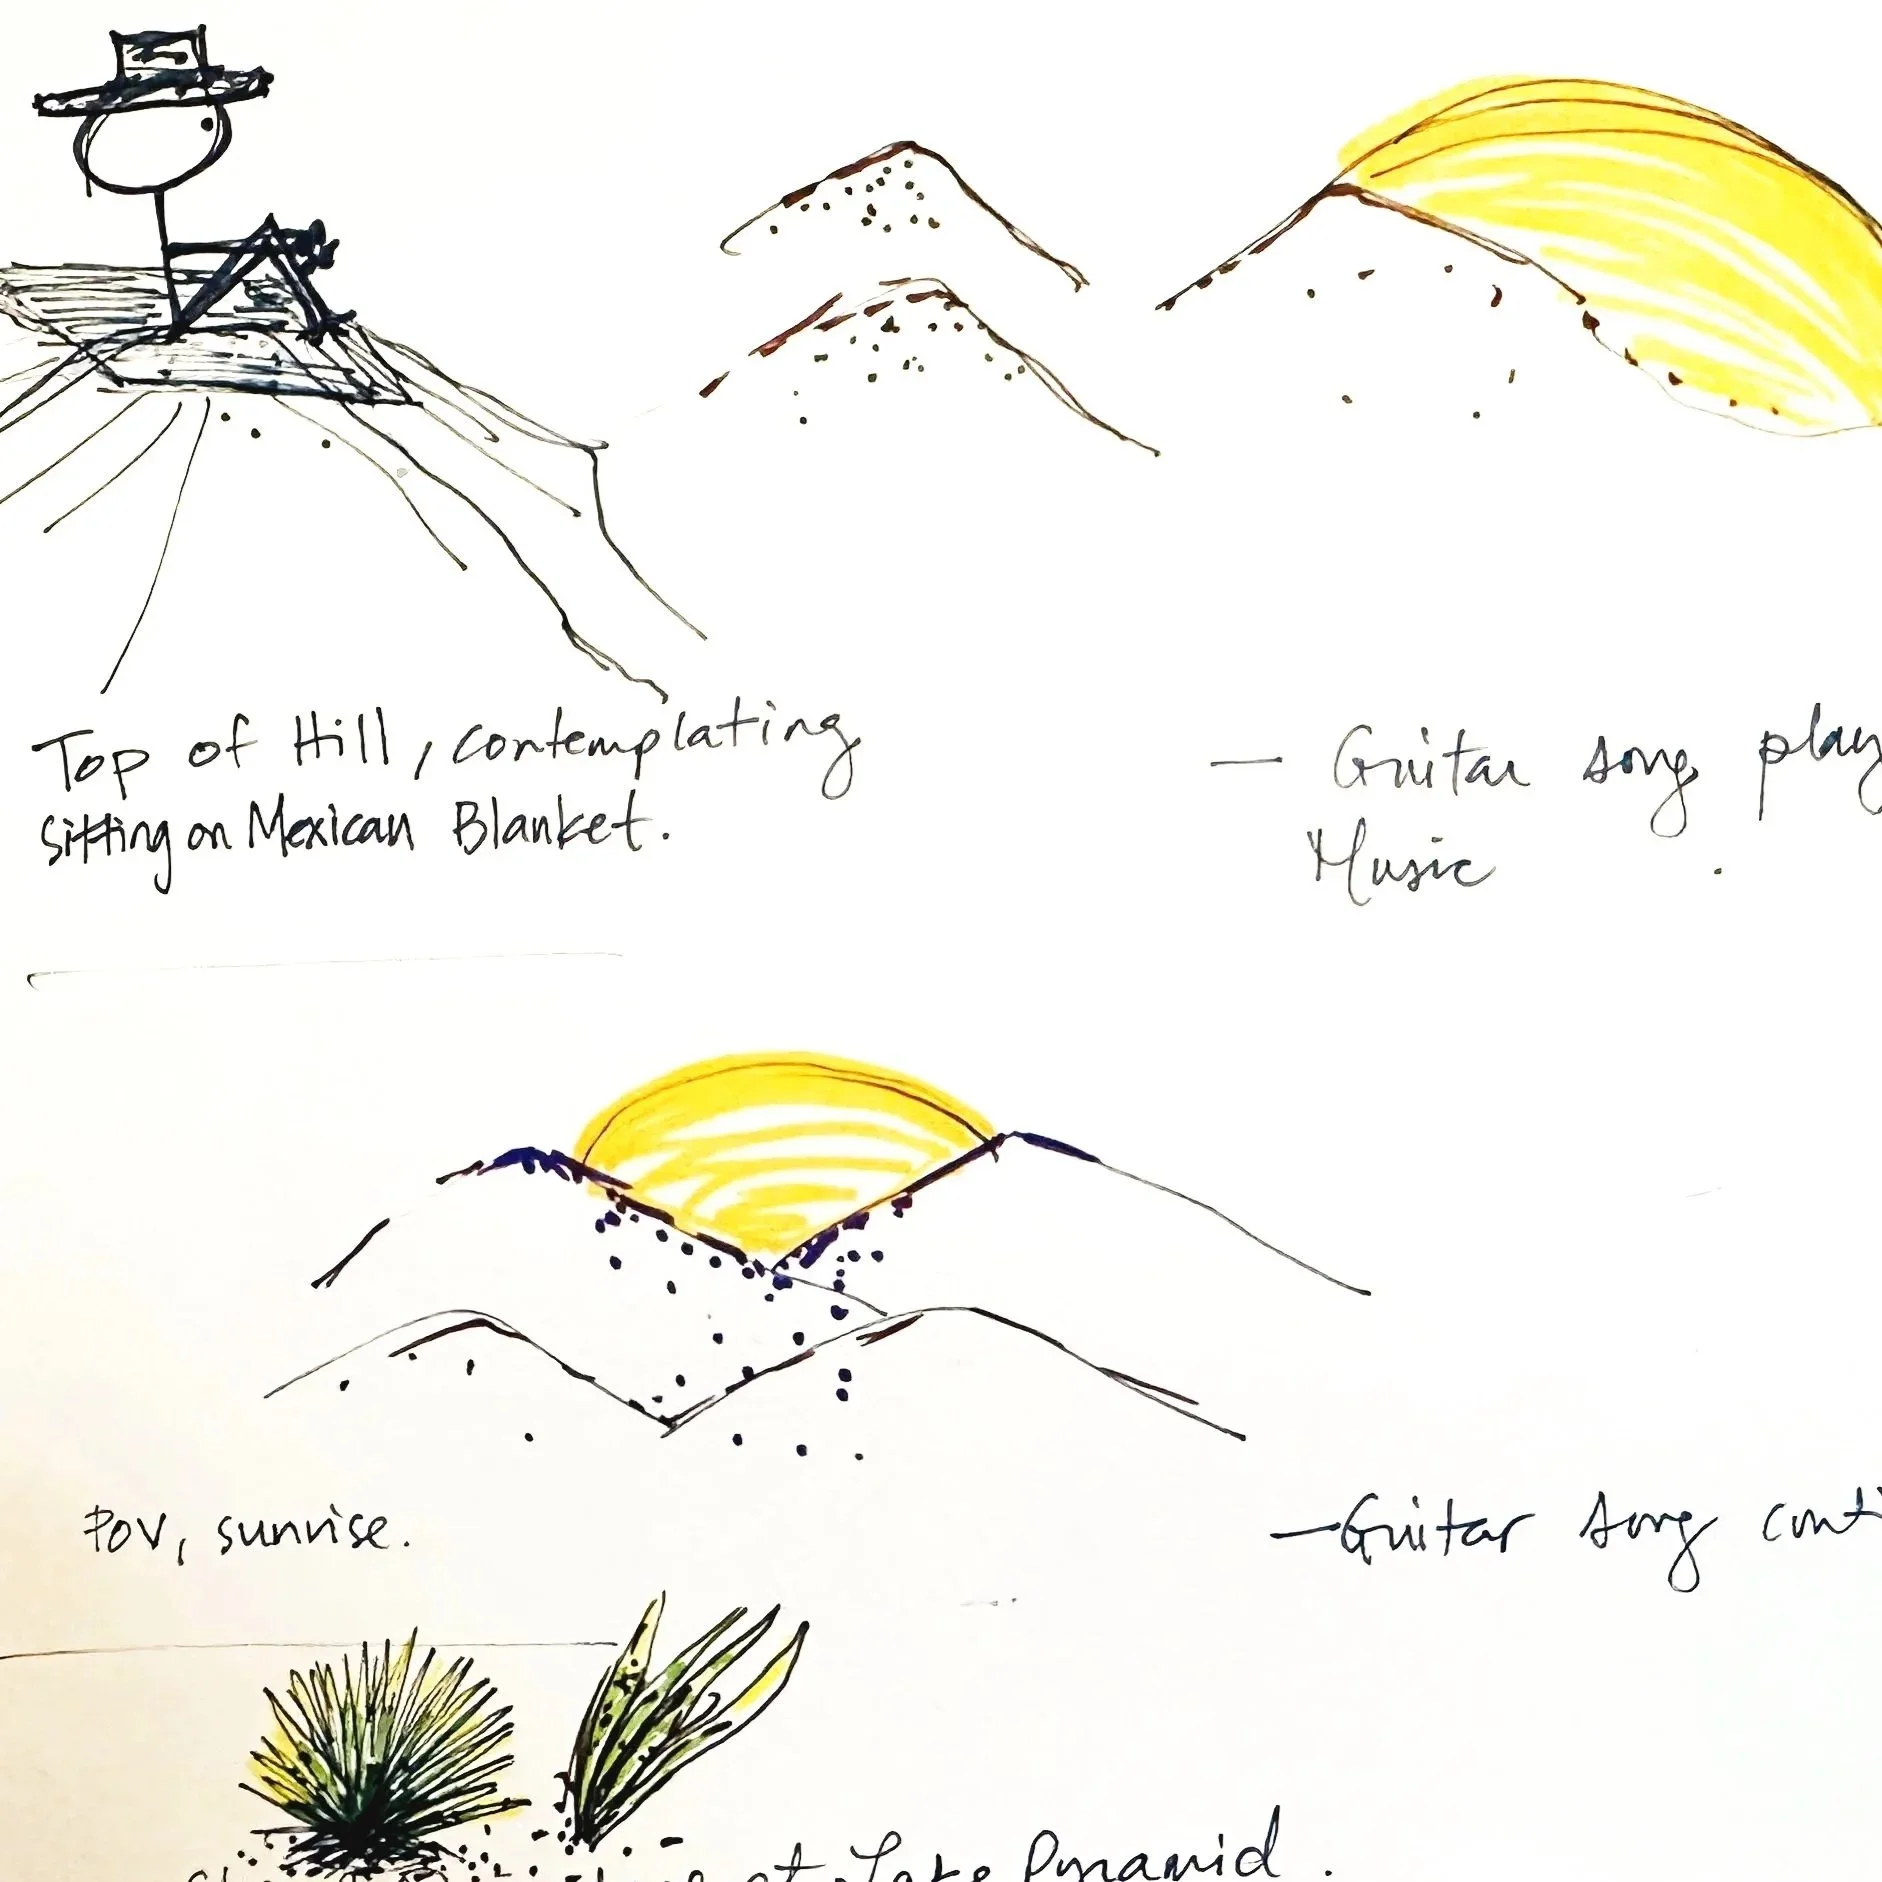 Top of Hill, contemplating
sitting on Mexican Blanket.
— Guitar song play
Music .
POV, sunrise.
— Guitar song conti
at Lake Pyramid .